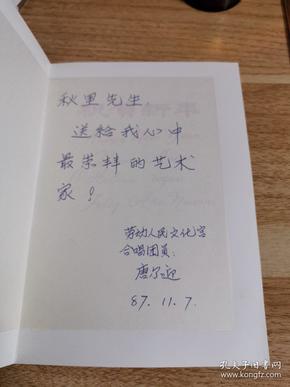 秋里先生
送给我心中
最崇拜的艺术
家！
劳动人民文化宫
合唱团员：
唐尔迎
87.11.7.
孔夫子旧书网